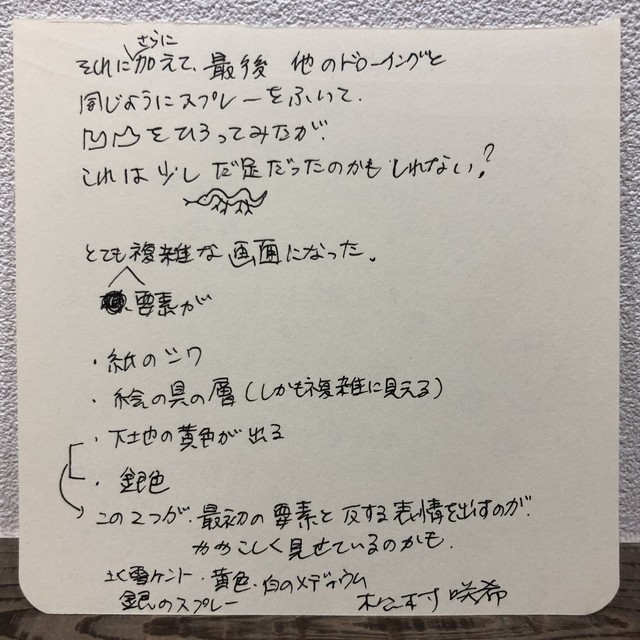 さらに
それに加えて、最後 他のドローイングと
同じようにスプレーをふいて、
凹凸をひろってみたが、
これは少し だ足だったのかもしれない?
とても複雑な画面になった。
要素が
・紙のシワ
・絵の具の層(しかも複雑に見える)
・下地の黄色が出る
・銀色
この2つが、最初の要素と反する表情を出すのが、
ややこしく見せているのかも。
雪ケント・黄色・白のメディウム
銀のスプレー 松村咲希